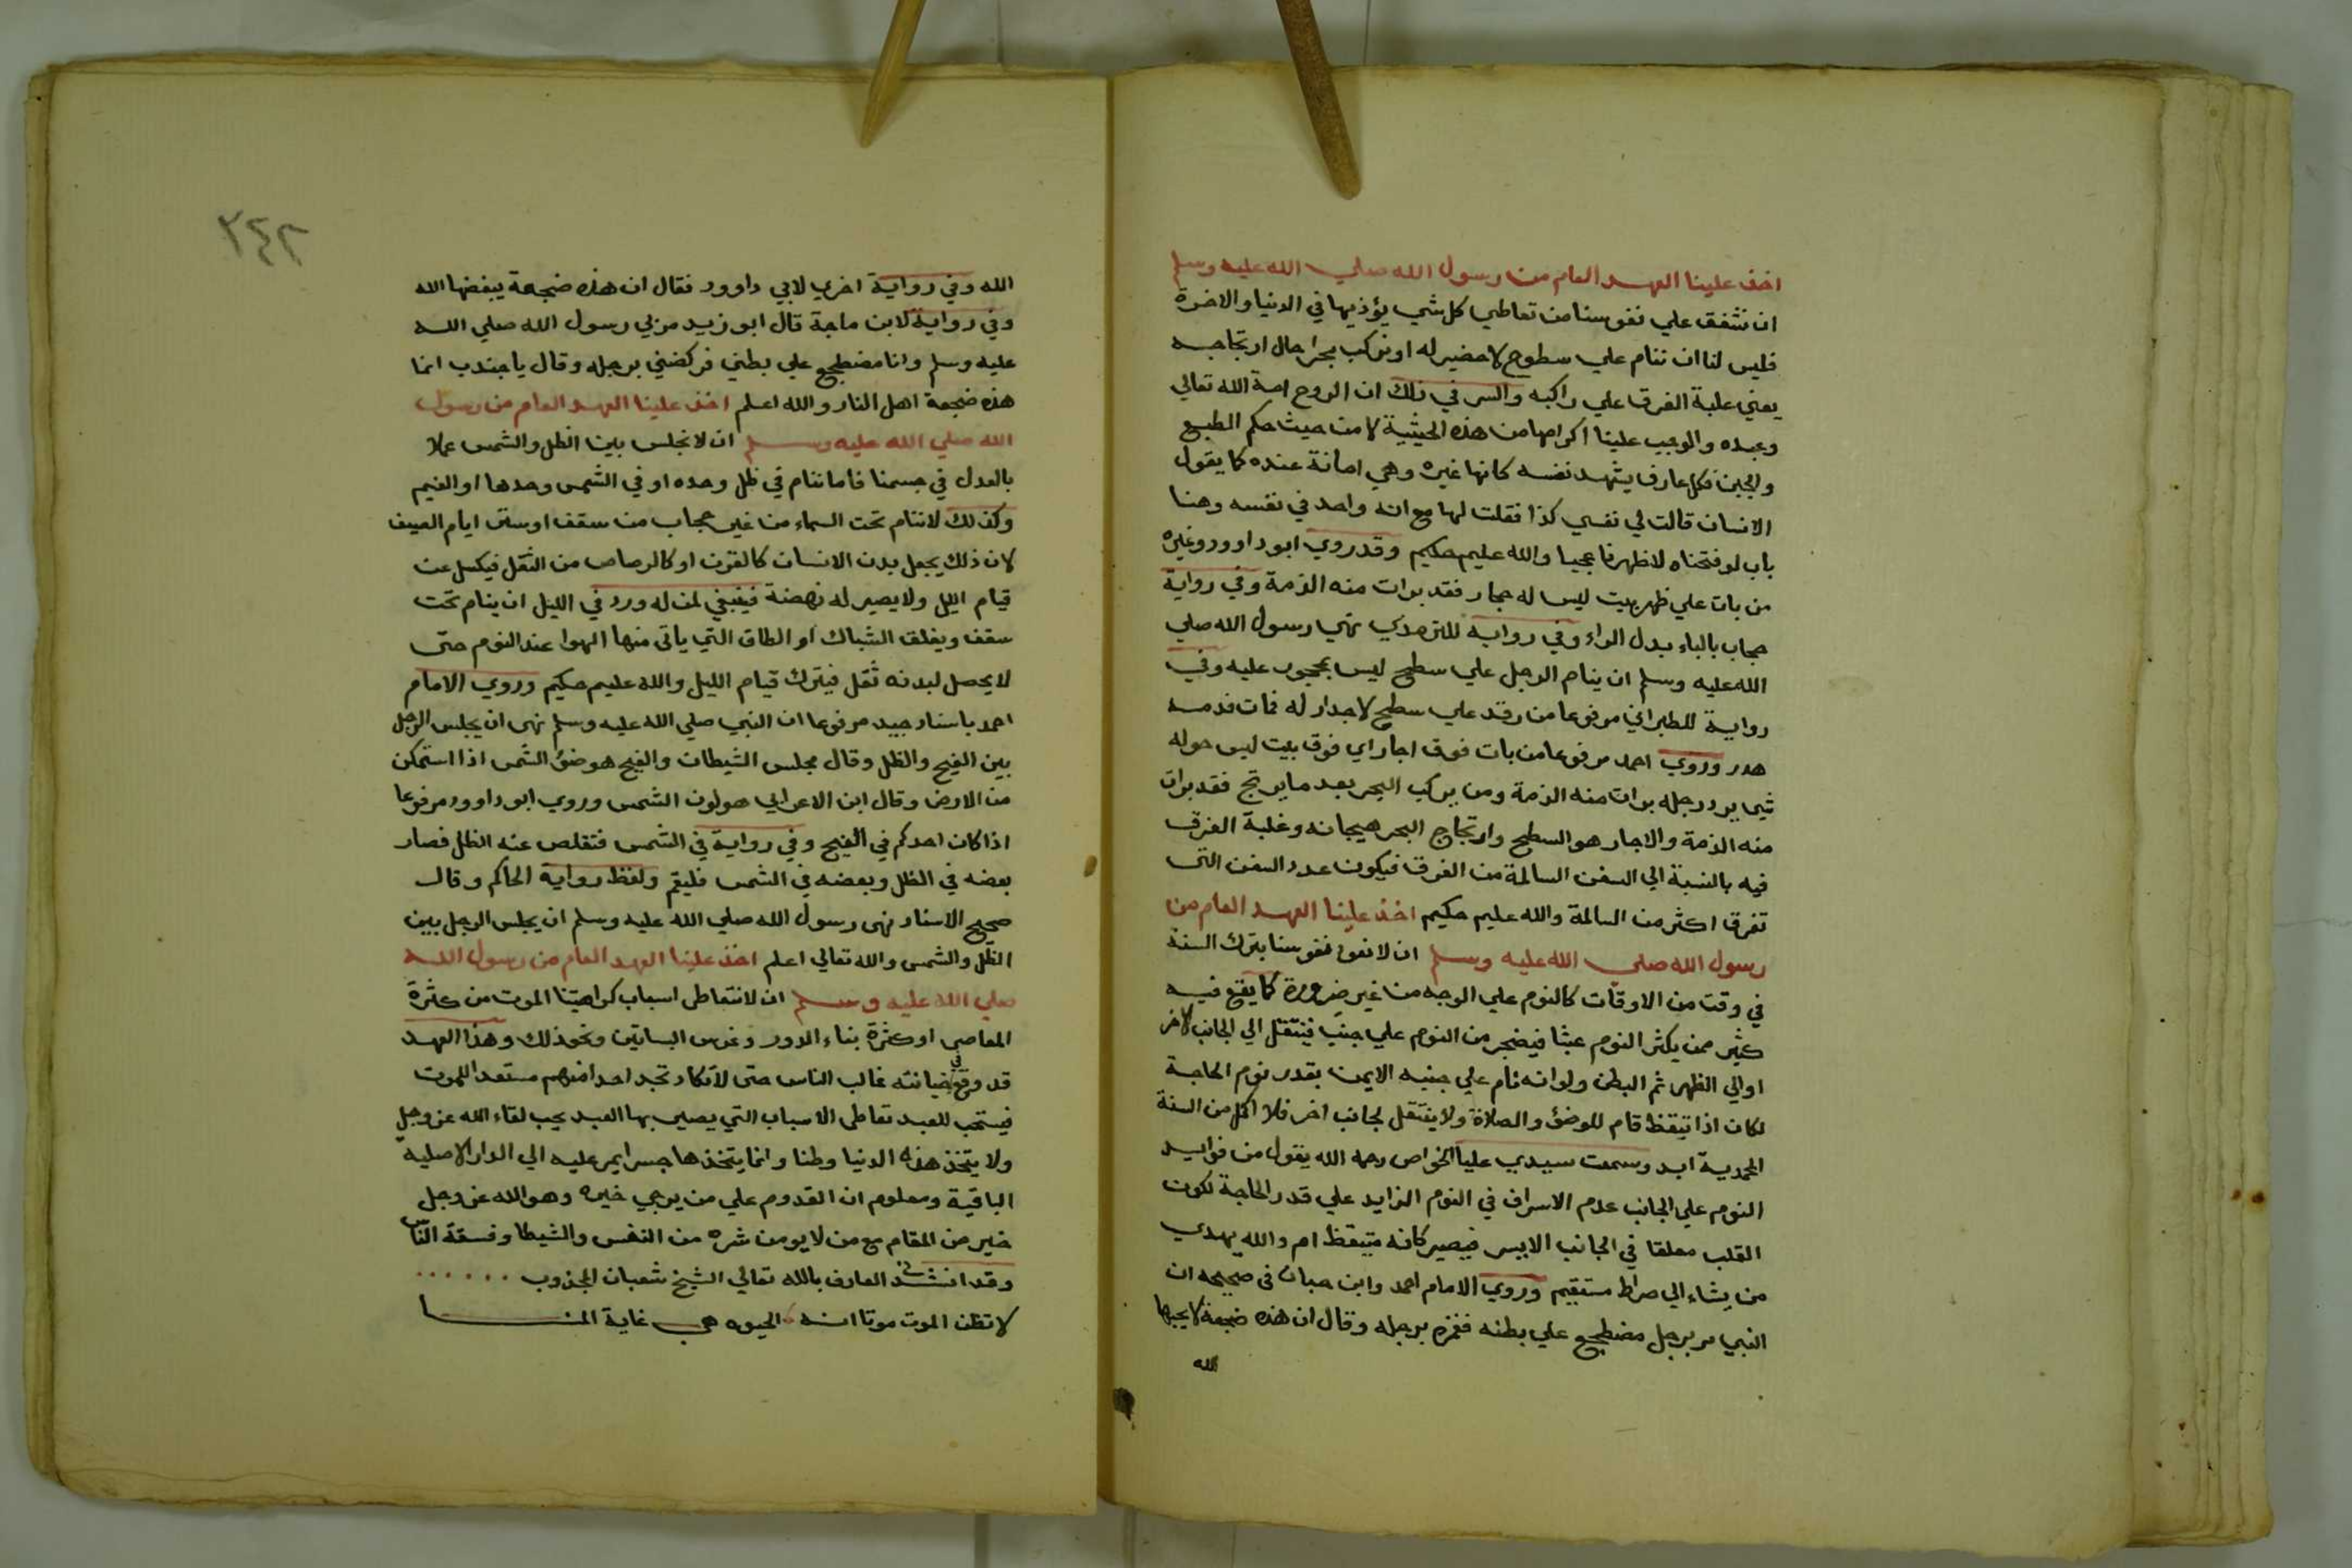 اخذ علينا العهد العام من رسول الله صلي الله عليه وسلم
ان نشفق علي نفوسنا من تعاطي كل شي يؤذيها في الدنيا والاخرة
فليس لنا ان ننام علي سطوح لا حضير له او نركب بحرا حال ارتجاجه
يعني غلبة الغرق علي راكبه والسر في ذلك ان الروح امة الله تعالي
وعبده والواجب علينا اكرامها من هذه الحيثية لا من حيث حكم الطبع
والجبن فكل عارف يشهد نفسه كانها غيره وهي امانة عنده كما يقول
الانسان قالت لي نفسي كذا فقلت لها مع انه واحد في نفسه وهنا
باب لو فتحناه لاظهرنا عجبا والله عليم حكيم وقد روي ابو داوود وغيره
من بات علي ظهر بيت ليس له حجار فقد برات منه الذمة وفي رواية
حجاب بالباء بدل الراء وفي رواية للترمذي نهي رسول الله صلي
الله عليه وسلم ان ينام الرجل علي سطح ليس بمحجور عليه وفي
رواية للطبراني مرفوعا من رقد علي سطح لا جدار له فمات فدمه
هدر وروي احمد مرفوعا من بات فوق اجار اي فوق بيت ليس حوله
شي يرد رجله برات منه الذمة ومن يركب البحر بعد ما يرتج فقد برات
منه الذمة والاجار هو السطح وارتجاج البحر هيجانه وغلبة الغرق
فيه بالنسبة الي السفن السالمة من الغرق فيكون عدد السفن التي
تغرق اكثر من السالمة والله عليم حكيم اخذ علينا العهد العام من
رسول الله صلي الله عليه وسلم ان لا نعود نفوسنا بترك السنة
في وقت من الاوقات كالنوم علي الوجه من غير ضرورة كما يقع فيه
كثير ممن يكثر النوم عبثا فيضجر من النوم علي جنب فينتقل الي الجانب الاخر
او الي الظهر ثم البطن ولو انه نام علي جنبه الايمن بقدر نوم الحاجة
لكان اذا تيقظ قام للوضؤ والصلاة ولا ينتقل لجانب اخر فلا اكمل من السنة
المحمدية ابد وسمعت سيدي عليا الخواص رحمه الله يقول من فوايد
النوم علي الجانب عدم الاسراف في النوم الزايد علي قدر الحاجة لكون
القلب معلقا في الجانب الايسر فيصير كانه متيقظ ام والله يهدي
من يشاء الي صراط مستقيم وروي الامام احمد وابن حبان في صحيحه ان
النبي مر برجل مضطجع علي بطنه فغمزه برجله وقال ان هذه ضجعة لا يحبها
الله
٢٤٢
الله وفي رواية اخري لابي داوود فقال ان هذه ضجعة يبغضها الله
وفي رواية لابن ماجة قال ابو زيد مر بي رسول الله صلي الله
عليه وسلم وانا مضطجع علي بطني فركضني برجله وقال يا جندب انما
هذه ضجعة اهل النار والله اعلم اخذ علينا العهد العام من رسول
الله صلي الله عليه وسلم ان لا نجلس بين الظل والشمس عملا
بالعدل في جسمنا فاما ننام في ظل وحده او في الشمس وحدها او الغيم
وكذلك لا ننام تحت السماء من غير حجاب من سقف او ستر ايام الصيف
لان ذلك يجعل بدن الانسان كالقرن او كالرصاص من الثقل فيكسل عن
قيام الليل ولا يصير له نهضة فينبغي لمن له ورد في الليل ان ينام تحت
سقف ويغلق الشباك او الطاق التي ياتي منها الهوا عند النوم حتى
لا يحصل لبدنه ثقل فيترك قيام الليل والله عليم حكيم وروي الامام
احمد باسناد جيد مرفوعا ان النبي صلي الله عليه وسلم نهى ان يجلس الرجل
بين الضح والظل وقال مجلس الشيطان والضح هو ضؤ الشمس اذا استمكن
من الارض وقال ابن الاعرابي هو لون الشمس وروي ابو داوود مرفوعا
اذا كان احدكم في الضح وفي رواية في الشمس فتقلص عنه الظل فصار
بعضه في الظل وبعضه في الشمس فليقم ولفظ رواية الحاكم وقال
صحيح الاسناد نهى رسول الله صلي الله عليه وسلم ان يجلس الرجل بين
الظل والشمس والله تعالي اعلم اخذ علينا العهد العام من رسول الله
صلي الله عليه وسلم ان لا نتعاطى اسباب كراهيتنا الموت من كثرة
المعاصي او كثرة بناء الدور وغرس البساتين ونحو ذلك وهذا العهد
قد وقع في خيانته غالب الناس حتى لا تكاد تجد احدا منهم مستعدا للموت
فيستحب للعبد تعاطي الاسباب التي يصير بها العبد يحب لقاء الله عز وجل
ولا يتخذ هذه الدنيا وطنا وانما يتخذها جسرا يمر عليه الي الدار الاصلية
الباقية ومعلوم ان القدوم علي من يرجي خيره وهو الله عز وجل
خير من المقام مع من لا يومن شره من النفس والشيطا وفسقة الناس
وقد انشد العارف بالله تعالي الشيخ شعبان المجذوب ......
لا تظن الموت موتا انه الحيوه هي غاية المنا